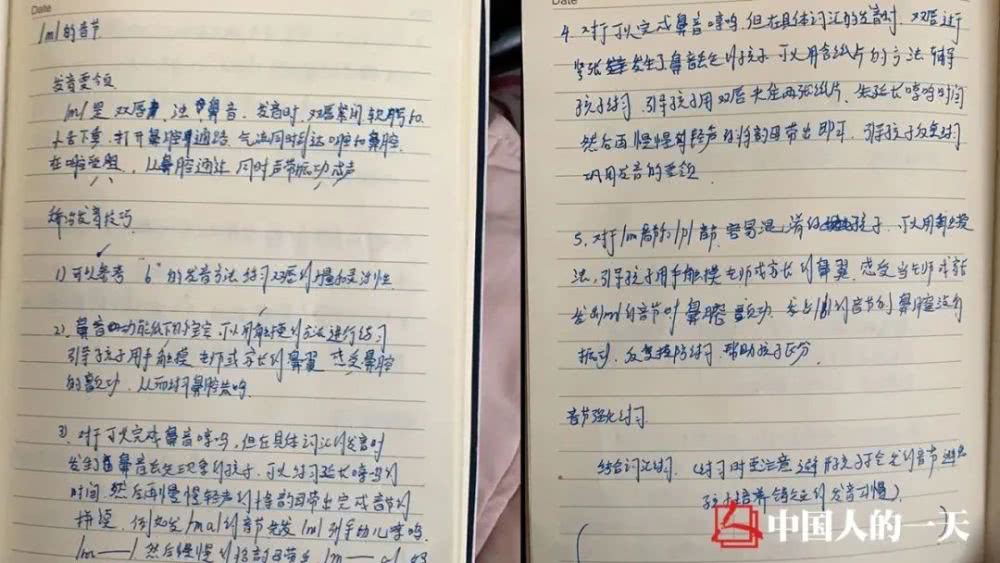 Date
/m/的音节
发音要领
/m/是双唇、浊鼻音。发音时,双唇紧闭,软腭和
小舌下垂,打开鼻腔通路,气流同时到达口腔和鼻腔,
在口腔受阻,从鼻腔通过,同时声带振动成声
矫治发音技巧
1)可以参考“b”的发音方法练习双唇的力量和灵活性
2)鼻音功能低下的宝宝,可以用触摸的方法进行练习
引导孩子用手触摸老师或家长的鼻翼,感受鼻腔
的震动,从而打开鼻腔共鸣。
3)对于可以完成鼻音哼鸣,但在具体词汇的发音时
发生了鼻音丢失现象的孩子,可以练习延长哼鸣的
时间,然后再慢慢轻声的将韵母带出完成音节的
拼读,例如发/ma/的音节先发/m/到手动儿哼鸣
/m——/然后慢慢的将韵母带出/m——a/的
Date
4.对于可以完成鼻音哼鸣,但在具体词汇的发音时,双唇过于
紧张发生了鼻音丢失的孩子,可以用含纸片的方法,辅导
孩子练习,引导孩子用双唇夹住两张纸片,先延长哼鸣时间
然后再慢慢轻声的将韵母带出即可,引导孩子反复练习
巩固发音的要领
5.对于/m/音节和/p/音节容易混淆的孩子,可以用触摸
法,引导孩子用手触摸老师或家长的鼻翼,感受当老师或家长
发出/m/的音节时鼻腔震动,发出/p/的音节时鼻腔没有
振动,反复对比练习,帮助孩子区分
音节强化练习
结合词汇练习,(练习时要注意避开孩子不会发的音节避免
孩子培养错误的发音习惯)
中国人的一天